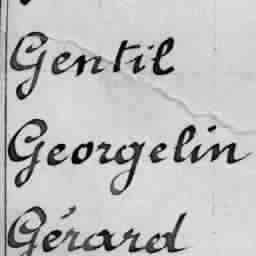 Gentil
Georgelin
Gérard